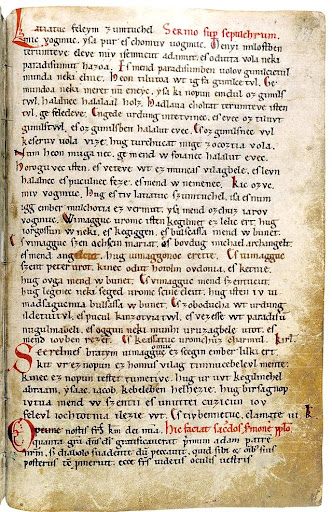 Sermo sup sepulchrum.
Latiatuc feleym zumtuchel
mic vogmuc. ysa pur es chomuv uogmuc. Menyi milostben
terumteve eleve miv isemucut adamut. es odutta vola neki
paradisumut hazoa. Es mend paradisumben uolov gimilcictul
munda neki elnie. Heon tilutoa wt ig fa gimilce tvl. Ge
mundoa neki meret nu eneyc. ysa ki nopun emdul oz gimils
twl. halalnec halaal holz. Hadlaua choltat terumteve isten
tvl. ge feledeve. Engede urdung intetvinec. es evec oz tiluvt
gimilstvvl. es oz gimilsben halalut evec. Es oz gimilsnec vvl
keseruv uola vize. hug turchucat mige zocoztia vola.
Num heon muga nec. ge mend w foianec halalut evec.
Horoguvec isten. es veteve wt ez muncas vilagbele. es levn
halalnec es puculnec feze. es mend w nemenec. Kic ozvc.
miv vogmuc. Hug es tiv latiatuv szumtuchel. isa es num
igg ember mulchotia ez vermut. ysa mend ozchuz iarov
vogmuc. Wimagguc uromc isten kegilmet ez lelic ert. hug
iorgossun w neki. es kegiggen. es bulsassa mend w bunet.
Es vimagguc szen achscin mariat. es bovdug michael archangelt.
es mend angelcut. hug uimaggonoc erette. Es uimagguc
szent peter urot. kinec odut hotolm ovdonia. es ketnie.
hug ovga mend w bunet. Es vimagguc mend szentucut.
hug legenec neki seged uromc scine eleut. hug isten iv ui
madsagucmia bulsassa w bunet. Es zoboducha wt urdung
ildetuitvl. es pucul kinzotviatwl. es vezesse wt paradisu
nugulmabeli. es oggun neki munhi uruzagbele utot. es
mend iovben rezet. Es keassatuc uromchuz charmul. Kirl.
Scerelmes bratym uimagguc omuc ez scegin ember lilki ert.
kit vr ez nopun ez homus vilag timnucebelevl mente.
kinec ez nopun testet tumetivc. hug ur uvt kegilmehel
abraam. ysaac. iacob. kebeleben helhezie. hug birsagnop
ivtva mend w szentii es unuttei cuzicun iov
felevl iochtotnia ilezie vvt. Es tivbennetuc. clamate iii. K
Hic faciat sacdos smone pplo.